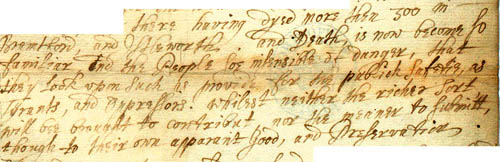 there having dyed more then 300 in
Bremtford, and Isleworth and Death is now become so
familier and the People soe insensible of danger, that
they look upon such as provide for the publick Safety, as
Tirants, and Oppressors. whilest neither the richer Sort
will bee brought to contribut, nor the meaner to submitt,
though to their own apparant Good, and Preservation.